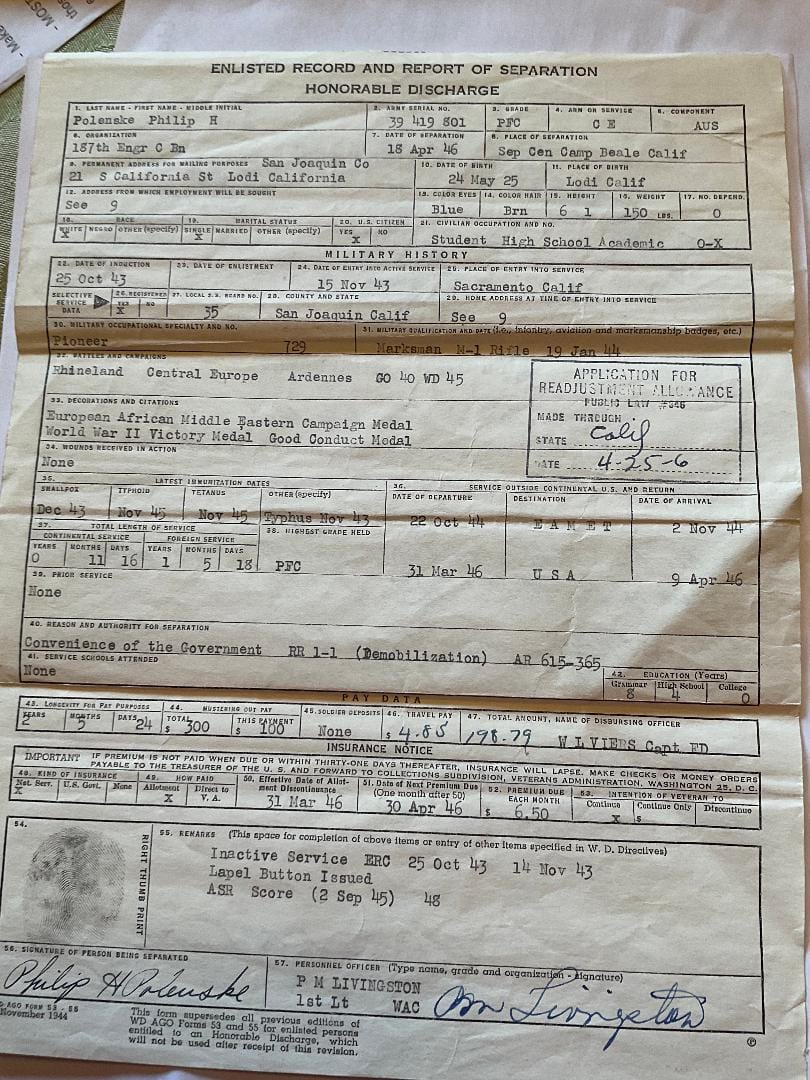 ENLISTED RECORD AND REPORT OF SEPARATION
HONORABLE DISCHARGE
1. LAST NAME - FIRST NAME - MIDDLE INITIAL 2. ARMY SERIAL NO. 3. GRADE 4. ARM OR SERVICE 5. COMPONENT
Polenske Philip H 39 419 801 PFC C E AUS
6. ORGANIZATION 7. DATE OF SEPARATION 8. PLACE OF SEPARATION
187th Engr C Bn 18 Apr 46 Sep Cen Camp Beale Calif
9. PERMANENT ADDRESS FOR MAILING PURPOSES San Joaquin Co 10. DATE OF BIRTH 11. PLACE OF BIRTH
21 S California St Lodi California 24 May 25 Lodi Calif
12. ADDRESS FROM WHICH EMPLOYMENT WILL BE SOUGHT 13. COLOR EYES 14. COLOR HAIR 15. HEIGHT 16. WEIGHT 17. NO. DEPEND.
See 9 Blue Brn 6 1 150 LBS. 0
18. RACE 19. MARITAL STATUS 20. U.S. CITIZEN 21. CIVILIAN OCCUPATION AND NO.
WHITE NEGRO OTHER (specify) SINGLE MARRIED OTHER (specify) YES NO
X X X Student High School Academic 0-X
MILITARY HISTORY
22. DATE OF INDUCTION 23. DATE OF ENLISTMENT 24. DATE OF ENTRY INTO ACTIVE SERVICE 25. PLACE OF ENTRY INTO SERVICE
25 Oct 43 15 Nov 43 Sacramento Calif
SELECTIVE SERVICE DATA 26. REGISTERED YES NO 27. LOCAL S.S. BOARD NO. 28. COUNTY AND STATE 29. HOME ADDRESS AT TIME OF ENTRY INTO SERVICE
X 35 San Joaquin Calif See 9
30. MILITARY OCCUPATIONAL SPECIALTY AND NO. 31. MILITARY QUALIFICATION AND DATE (i.e., infantry, aviation and marksmanship badges, etc.)
Pioneer 729 Marksman M-1 Rifle 19 Jan 44
32. BATTLES AND CAMPAIGNS
Rhineland Central Europe Ardennes GO 40 WD 45
APPLICATION FOR
READJUSTMENT ALLOWANCE
PUBLIC LAW #346
MADE THROUGH
STATE Calif
DATE 4-25-6
33. DECORATIONS AND CITATIONS
European African Middle Eastern Campaign Medal
World War II Victory Medal Good Conduct Medal
34. WOUNDS RECEIVED IN ACTION
None
35. LATEST IMMUNIZATION DATES 36. SERVICE OUTSIDE CONTINENTAL U.S. AND RETURN
SMALLPOX TYPHOID TETANUS OTHER (specify) DATE OF DEPARTURE DESTINATION DATE OF ARRIVAL
Dec 43 Nov 45 Nov 45 Typhus Nov 43 22 Oct 44 E A M E T 2 Nov 44
37. TOTAL LENGTH OF SERVICE 38. HIGHEST GRADE HELD
CONTINENTAL SERVICE FOREIGN SERVICE
YEARS MONTHS DAYS YEARS MONTHS DAYS
0 11 16 1 5 18 PFC 31 Mar 46 U S A 9 Apr 46
39. PRIOR SERVICE
None
40. REASON AND AUTHORITY FOR SEPARATION
Convenience of the Government RR 1-1 (Demobilization) AR 615-365
41. SERVICE SCHOOLS ATTENDED 42. EDUCATION (Years)
None Grammar High School College
8 4 0
PAY DATA
43. LONGEVITY FOR PAY PURPOSES 44. MUSTERING OUT PAY 45. SOLDIER DEPOSITS 46. TRAVEL PAY 47. TOTAL AMOUNT, NAME OF DISBURSING OFFICER
YEARS MONTHS DAYS TOTAL THIS PAYMENT
2 5 24 $ 300 $ 100 None $ 4.85 198.79 W L VIERS Capt FD
INSURANCE NOTICE
IMPORTANT IF PREMIUM IS NOT PAID WHEN DUE OR WITHIN THIRTY-ONE DAYS THEREAFTER, INSURANCE WILL LAPSE. MAKE CHECKS OR MONEY ORDERS
PAYABLE TO THE TREASURER OF THE U. S. AND FORWARD TO COLLECTIONS SUBDIVISION, VETERANS ADMINISTRATION, WASHINGTON 25, D. C.
48. KIND OF INSURANCE 49. HOW PAID 50. Effective Date of Allotment Discontinuance 51. Date of Next Premium Due (One month after 50) 52. PREMIUM DUE EACH MONTH 53. INTENTION OF VETERAN TO
Nat. Serv. U.S. Govt. None Allotment Direct to V. A. Continue Continue Only Discontinue
X X 31 Mar 46 30 Apr 46 $ 6.50 X $
54.
RIGHT THUMB PRINT
55. REMARKS (This space for completion of above items or entry of other items specified in W. D. Directives)
Inactive Service ERC 25 Oct 43 14 Nov 43
Lapel Button Issued
ASR Score (2 Sep 45) 48
56. SIGNATURE OF PERSON BEING SEPARATED 57. PERSONNEL OFFICER (Type name, grade and organization - signature)
Philip H Polenske
P M LIVINGSTON
1st Lt WAC
PM Livingston
AGO FORM 53-55
November 1944
This form supersedes all previous editions of
WD AGO Forms 53 and 55 for enlisted persons
entitled to an Honorable Discharge, which
will not be used after receipt of this revision.